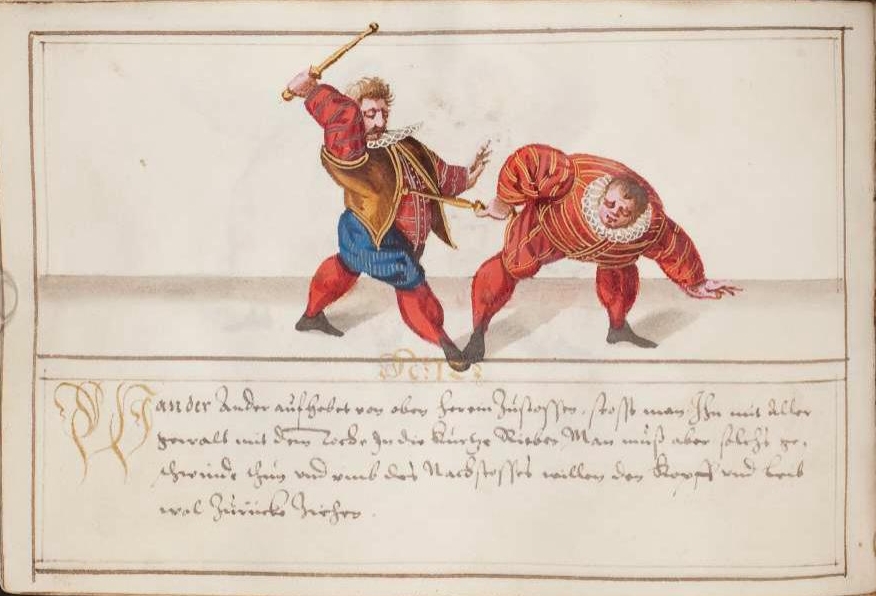 Wan der Ander aufhebet von oben herein Zustossen, stosst man Ihn mit Aller
gewalt mit dem In die kurtze Rieben Man muß aber solchs ge,
schwinde thun vnd vmb des Nachstosses willen den Kopff vnd leib
wol Zurücke Ziehen.